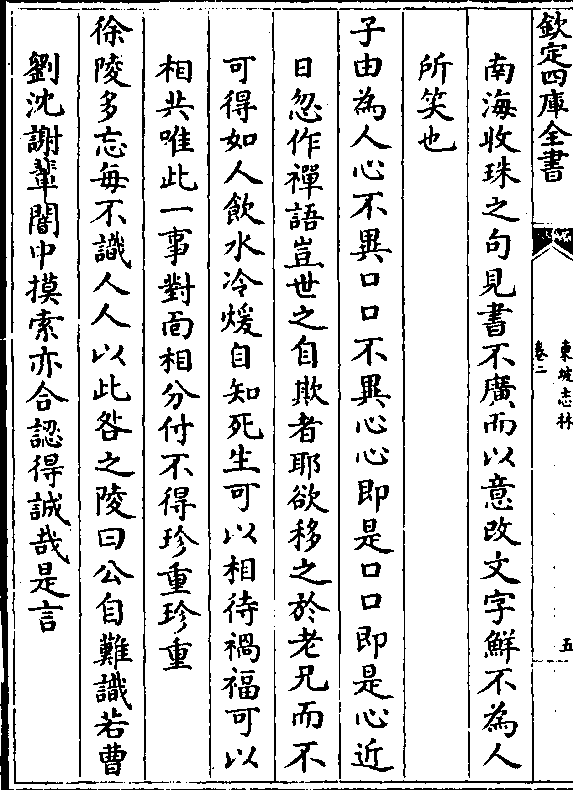 欽定四庫全書
東坡志林
卷二
五
南海收珠之句見書不廣而以意改文字鮮不為人
所笑也
子由為人心不異口口不異心心即是口口即是心近
日忽作禪語豈世之自欺者耶欲移之於老兄而不
可得如人飲水冷煖自知死生可以相待禍福可以
相共唯此一事對面相分付不得珍重珍重
徐陵多忘每不識人人以此咎之陵曰公自難識若曹
劉沈謝輩闇中摸索亦合認得誠哉是言